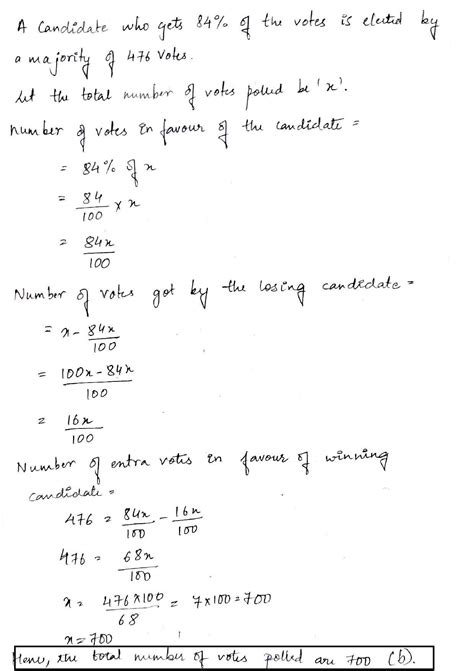 A Candidate who gets 84% of the votes is elected by
a majority of 476 votes.
Let the total number of votes polled be 'x'.
Number of votes in favour of the candidate =
= 84% of x
= 84/100 × x
= 84x/100
Number of votes got by the losing candidate =
= x - 84x/100
= 100x - 84x/100
= 16x/100
Number of extra votes in favour of winning
candidate =
476 = 84x/100 - 16x/100
476 = 68x/100
x = 476×100/68 = 7×100 = 700
x = 700
Hence, the total number of votes polled are 700 (b).